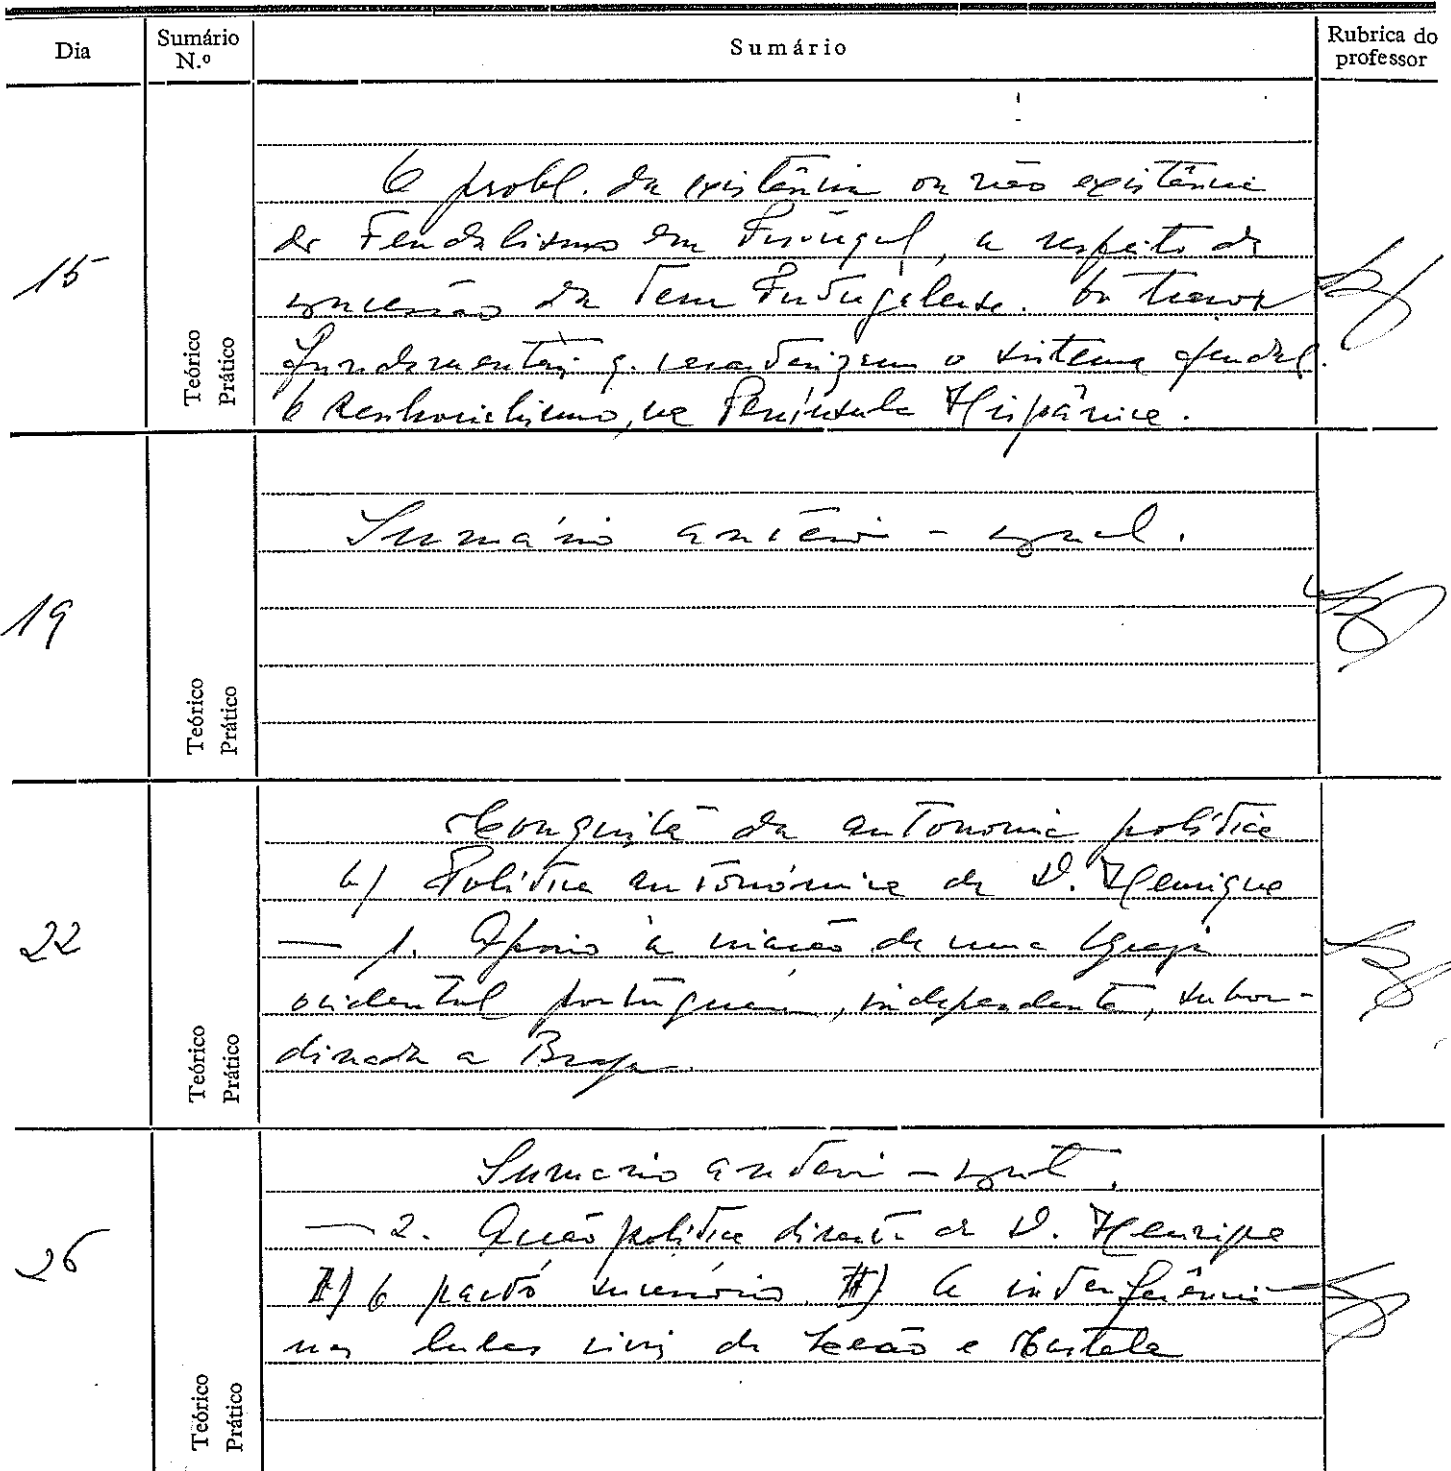 Dia
Sumário N.º
Sumário
Rubrica do professor
15
Teórico
Prático
O probl. da existência ou não existência
do Feudalismo em Portugal, a respeito da
concessão da Terra Portugalense. Os traços
fundamentais q. caracterizam o sistema feudal.
O senhorialismo, na Península Hispânica.
19
Teórico
Prático
Sumário anterior -
22
Teórico
Prático
Conquista da autonomia política
a) Política autonómica de D. Henrique
— 1. Apoio à criação de uma Igreja
ocidental portuguesa, independente, subor-
dinada a Braga.
26
Teórico
Prático
Sumário anterior -
— 2. Acção política directa de D. Henrique
O pacto sucessório. A interferência
nas lutas civis de Leão e Castela